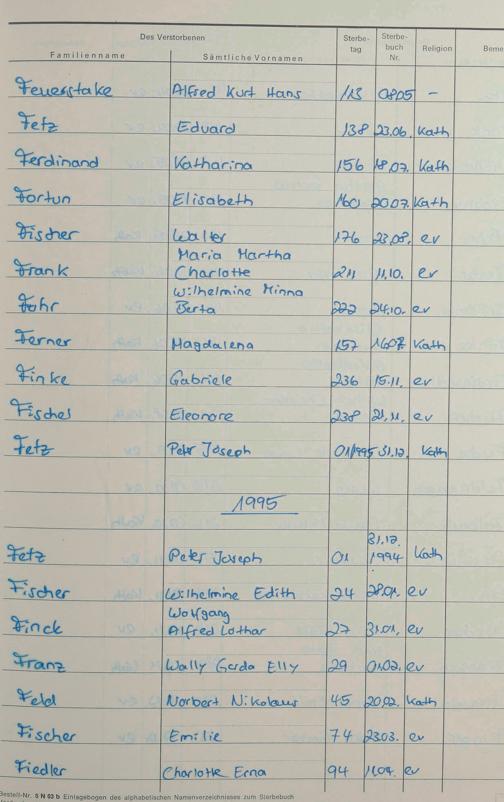 Des Verstorbenen
Familienname Sämtliche Vornamen Sterbe-tag Sterbe-buch Nr. Religion Beme
Feuerstake Alfred Kurt Hans 113 08.05 -
Fetz Eduard 138 23.06. Kath
Ferdinand Katharina 156 18.07. Kath
Fortun Elisabeth 160 20.07. Kath
Fischer Walter 176 23.08. ev
Maria Martha
Frank Charlotte 211 11.10. ev
Wilhelmine Minna
Fuhr Berta 222 24.10. ev
Ferner Magdalena 157 Kath
Finke Gabriele 236 15.11. ev
Fischer Eleonore 238 21.11. ev
Fetz Peter Joseph 01/1995 31.12. Kath
1995
31.12.
Fetz Peter Joseph 01 1994 Kath
Fischer Wilhelmine Edith 24 28.01. ev
Wolfgang
Finck Alfred Lothar 27 31.01. ev
Franz Wally Gerda Elly 29 01.02. ev
Feld Norbert Nikolaus 45 20.02. Kath
Fischer Emilie 74 23.03. ev
Fiedler Charlotte Erna 94 11.04. ev
Bestell-Nr. S N 03 b Einlagebogen des alphabetischen Namenverzeichnisses zum Sterbebuch